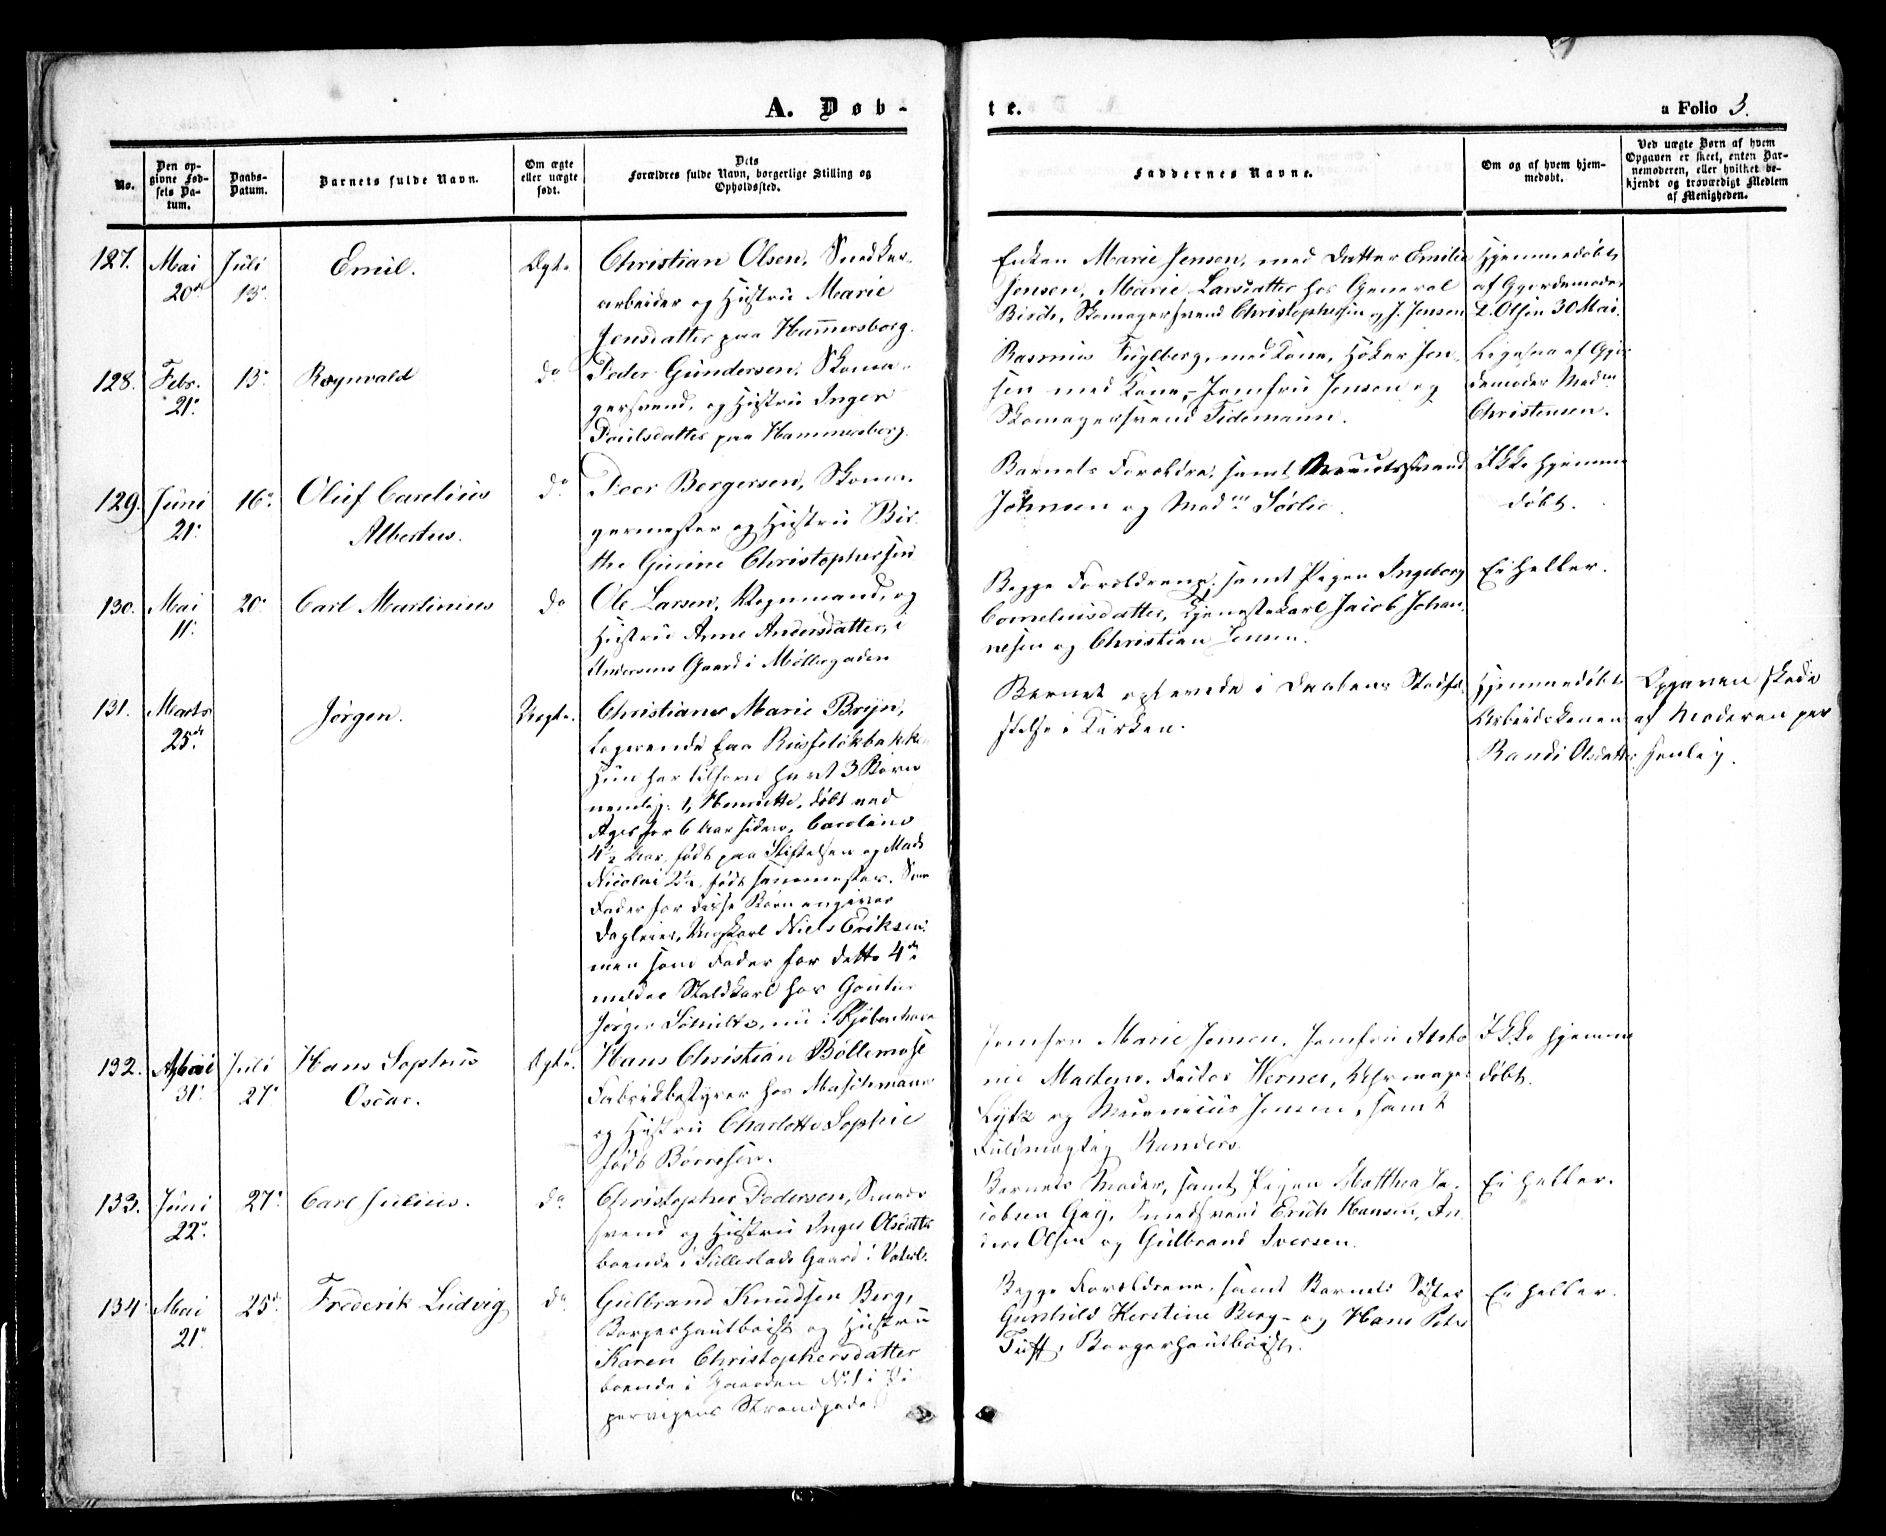 A. Døb-
te.
a Folio 3.
No.
Den op-
givne Fød-
sels Da-
tum.
Daabs-
Datum.
Barnets fulde Navn.
Om ægte
eller uægte
født.
Dets
Forældres fulde Navn, borgerlige Stilling og
Opholdssted.
Faddernes Navne.
Om og af hvem hjem-
medøbt.
Ved uægte Børn af hvem
Opgaven er skeet, enten Bar-
nemoderen, eller hvilket be-
kjendt og troværdigt Medlem
af Menigheden.
127.
Mai
20de
Juli
13.
Emil.
Ægte
Christian Olsen, Snedker-
arbeider og Hustru Marie
Jensdatter paa Hammersborg.
Enken Marie Jensen, med Datter Emilie
Jensen, Marie Larsdatter hos General
Birch, Skomagersvend Christophersen og J. Jensen
Hjemmedøbt
af Gjordemoder
L. Olsen 30 Mai.
128.
Febr.
21.
13.
Rognvald
do
Peder Gundersen, Skoma-
gersvend, og Hustru Inger
Poulsdatter paa Hammersborg.
Rasmus Fuglberg, med Kone, Høker Jen-
sen med Kone, Jomfru Jensen og
Skomagersvend Tidemann.
Ligesaa af Gjor
demoder Madm
Christensen.
129.
Juni
21.
16.
Oluf Carelius
Albertus.
do
Peer Bergersen, Skoma-
germester og Hustru Bir-
the Gurine Christophersen
Barnets Forældre, samt
Johnsen og Madm Sørlie.
Ikke hjemme
døbt.
130.
Mai
11.
20.
Carl Martinius
do
Ole Larsen, Vognmand, og
Hustru Anne Andersdatter, i
Andersens Gaard i Møllergaden
Begge Forældrene, samt Pigen Ingeborg
Corneliusdatter, Tjenestekarl Jacob Johan-
nesen og Christian Jensen.
Ei heller.
131.
Marts
25de
Jørgen.
Uægte.
Christiane Marie Brejn,
logerende paa Russeløkbakken
Hun har tilforn havt 3 Børn
nemlig: 1, Henriette, døbt ved
Ager for 6 Aar siden, Caroline
4½ Aar, født paa Stiftelsen og Mads
Nicolai 2½, født sammesteds. Som
Fader for disse Børn angiver
Dagleier, Ungkarl Niels Eriksen
men som Fader for dette 4de
melder Staldkarl hos
Jørgen Schultz, nu i Kjøbenhavn
Barnet
i Kirken.
Hjemmedøbt
Arbeidskonen
Randi Olsdatter
Opgaven skede
af Moderen per
sonlig.
132.
31.
Juli
27.
Hans Sophus
Oscar.
Ægte.
Hans Christian Bøllemose
Fabrikbestyrer hos Maschmann
og Hustru Charlotte Sophie
født Børresen.
Jomfru Marie Jensen, Jomfru Anto
nie Madsen, Factor Werner, Uhrmager
Lytz og Mechanicus Jensen, samt
Fuldmægtig Randers.
Ikke hjemme
døbt.
133.
Juni
22.
27.
Carl Julius.
do
Christopher Pedersen, Smed-
svend og Hustru Inger Olsdatter
boende i Gaard i Vaterl.
Barnets Moder, samt Pigen Matthea Ja-
cobsen Smedsvend Erich Hansen, An-
ders Olsen og Gulbrand Iversen.
Ei heller.
134.
Mai
21.
25.
Frederik Ludvig
do
Gulbrand Knudsen Berg,
Borgerhautboist og Hustru
Karen Christophersdatter
boende i Gaarden No 1 i Pi-
pervigens Strandgade.
Begge Forældrene, samt Barnets Søster
Gunhild Kerstine Berg og Hans Peter
Tuff, Borgerhautboist.
Ei heller.